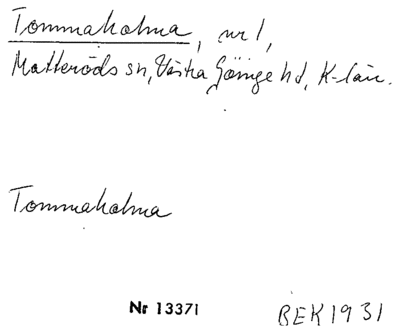 Tommaholma, nr 1,
Matteröds sn, Västra Göinge hd, K-län.
Tommaholma
Nr 13371
BEK 1931